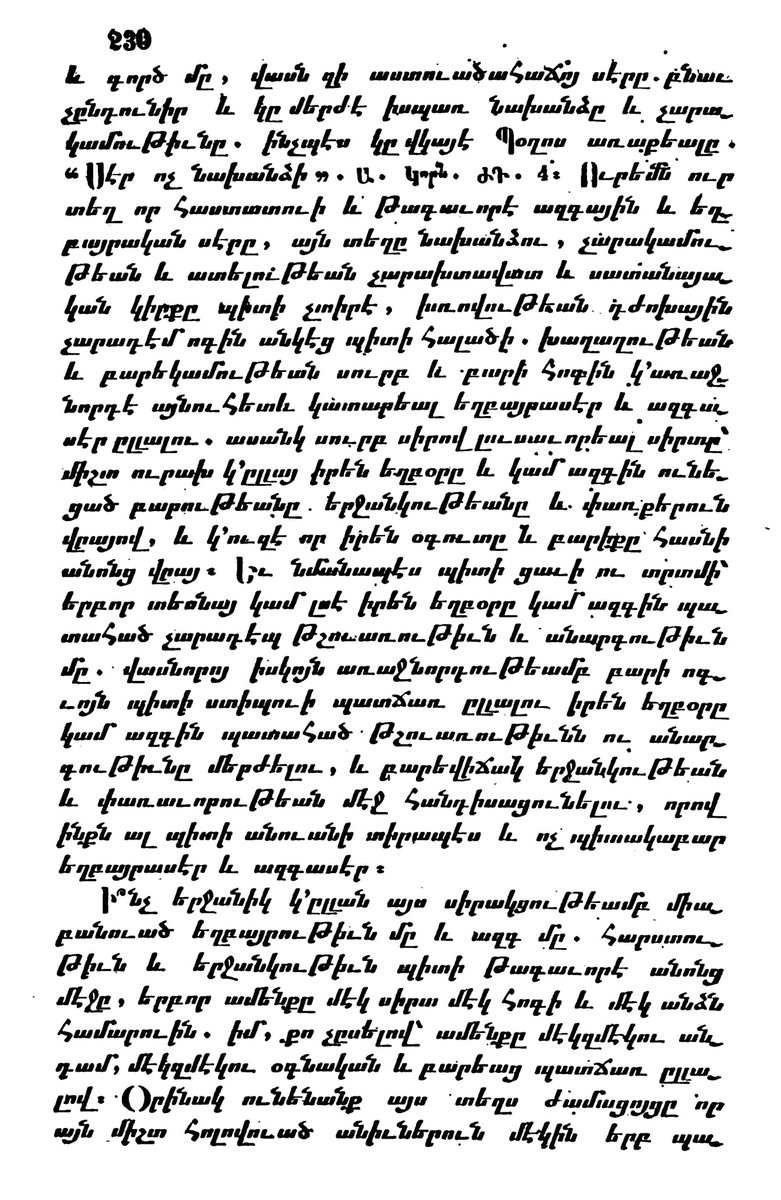 230
և գործ մը, վասն զի աստուածահաճոյ սէրը. բնաւ
չընդունիր և կը մերժէ իսպառ նախանձը և չարա_
կամութիւնը. ինչպէս կը վկայէ Պօղոս առաքեալը.
“Սէր ոչ նախանձի”. Ա. կորն. ԺԳ. 4։ Ուրեմն ուր
տեղ որ հաստատուի և թագաւորէ ազգային և եղ_
բայրական սէրը, այն տեղը նախանձու, չարակամու_
թեան և ատելութեան չարախտավատ և սատանայա_
կան կիրքը պիտի չտիրէ, խռովութեան դժոխային
չարադէմ ոգին անկէց պիտի հալածի. խաղաղութեան
և բարեկամութեան սուրբ և բարի հոգին կ’առաջ_
նորդէ այնուհետև կատարեալ եղբայրասէր և ազգա_
սէր ըլլալու. ասանկ սուրբ սիրով լուսաւորեալ սիրտը՝
միշտ ուրախ կ’ըլլայ իրեն եղբօրը և կամ ազգին ունե_
ցած բարութեանը երջանկութեանը և փառքերուն
վրայով, և կ’ուզէ որ իրեն օգուտը և բարիքը հասնի
անոնց վրայ։ Եւ նմանապէս պիտի ցաւի ու տրտմի՝
երբոր տեսնայ կամ լսէ իրեն եղբօրը կամ ազգին պա_
տահած չարադէպ թշուառութիւն և անարգութիւն
մը. վասնորոյ իսկոյն առաջնորդութեամբ բարի ոգ_
ւոյն պիտի ստիպուի պատճառ ըլլալու իրեն եղբօրը
կամ ազգին պատահած թշուառութիւնն ու անար_
գութիւնը մերժելու, և բարեվիճակ երջանկութեան
և փառաւորութեան մէջ հանդիսացունելու, որով
ինքն ալ պիտի անուանի տիրապէս և ոչ պիտակաբար
եղբայրասէր և ազգասէր։
Ի՜նչ երջանիկ կ’ըլլան այս սիրակցութեամբ միա_
բանուած եղբայրութիւն մը և ազգ մը. հարստու_
թիւն և երջանկութիւն պիտի թագաւորէ անոնց
մէջը, երբոր ամենքը մէկ սիրտ մէկ հոգի և մէկ անձն
համարուին. իմ, քո չըսելով՝ ամենքը մէկզմէկու ան_
դամ, մէկզմէկու օգնական և բարեաց պատճառ ըլլա_
լով։ Օրինակ ունենանք այս տեղս ժամացոյցը որ
այն միշտ հոլովուած անիւներուն մէկին երբ պա_